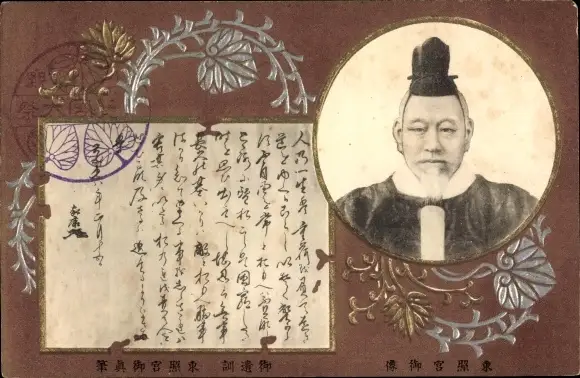 人の一生は重荷を負て遠き
道をゆくかことしいそくへからす
不自由を常とおもへは不足
なしこゝろに望おこらは困窮したる
時を思ひ出すへし堪忍は無事
長久の基いかりは敵とおもへ勝事
はかり知てまくる事をしらされは
害其身にいたるおのれを責て人を
せむるな及はさるは過たるよりまされり
慶長八年正月十五日
家康
東照宮御像
御遺訓 東照宮御眞筆